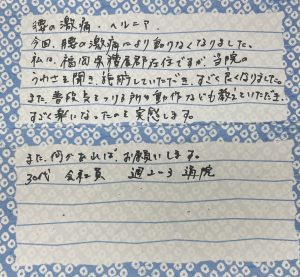 腰の激痛・ヘルニア
今回、腰の激痛により動けなくなりました。
私は、福岡県糟屋郡在住ですが、当院の
うわさを聞き、施術していただき、すごく良くなりました。
また、普段気をつける所や動作なども教えていただき、
すごく楽になったのを実感します。
また、何かあれば、お願いします。
30代 会社員 週2〜3 通院